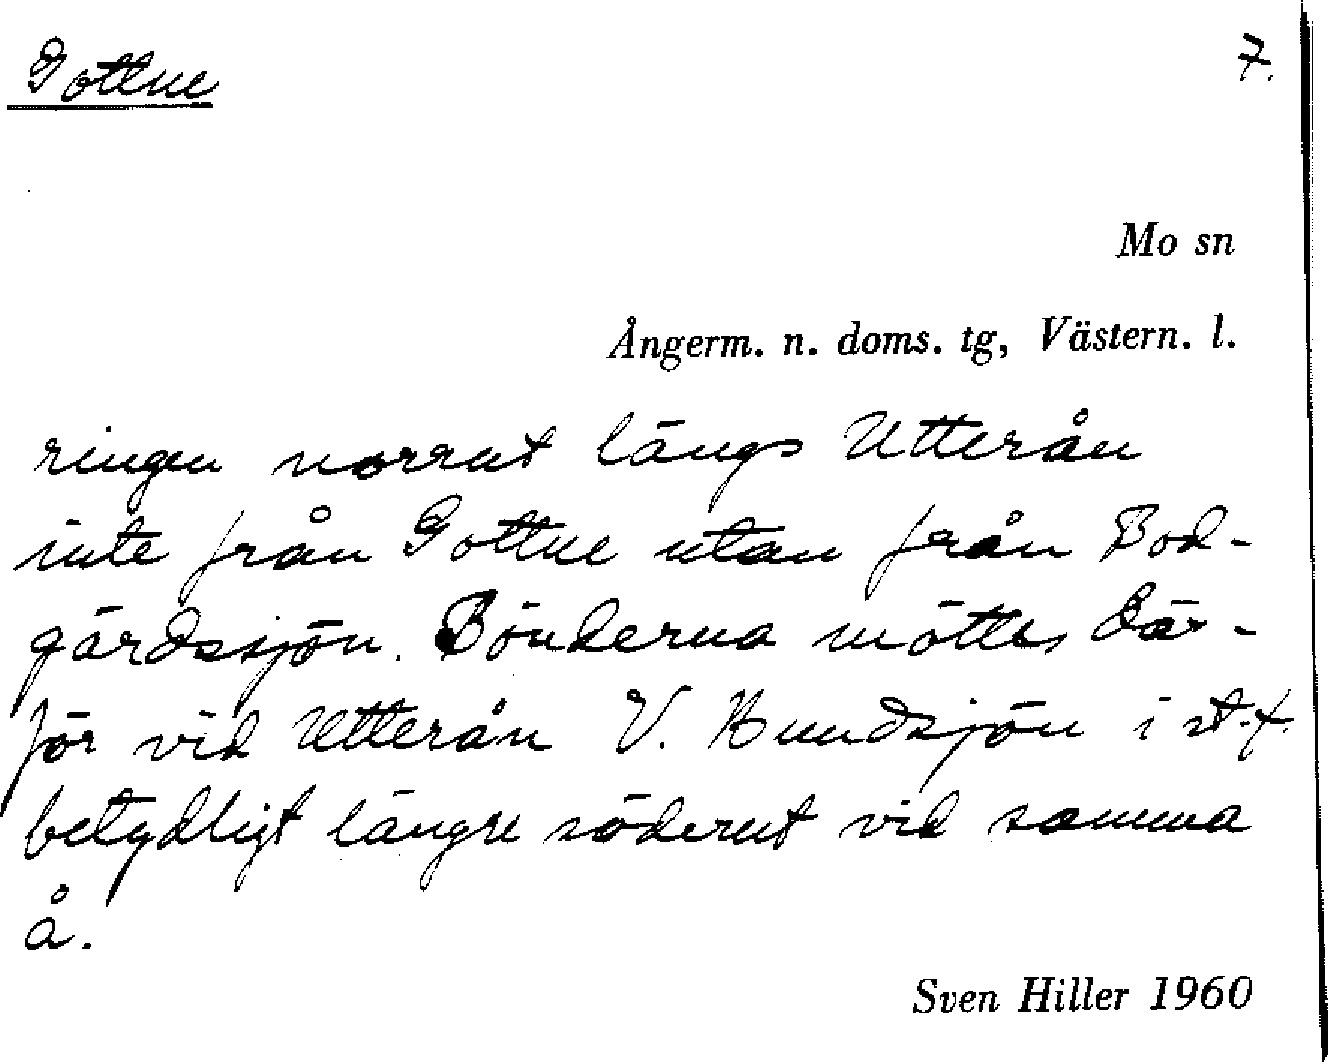 Gottne
7.
Mo sn
Ångerm. n. doms. tg, Västern. l.
ringen norrut längs Utterån
inte från Gottne utan från Bod-
gårdssjön. Bönderna möttes där-
för vid Utterån V. Hundsjön i st. f.
betydligt längre söderut vid samma
å.
Sven Hiller 1960